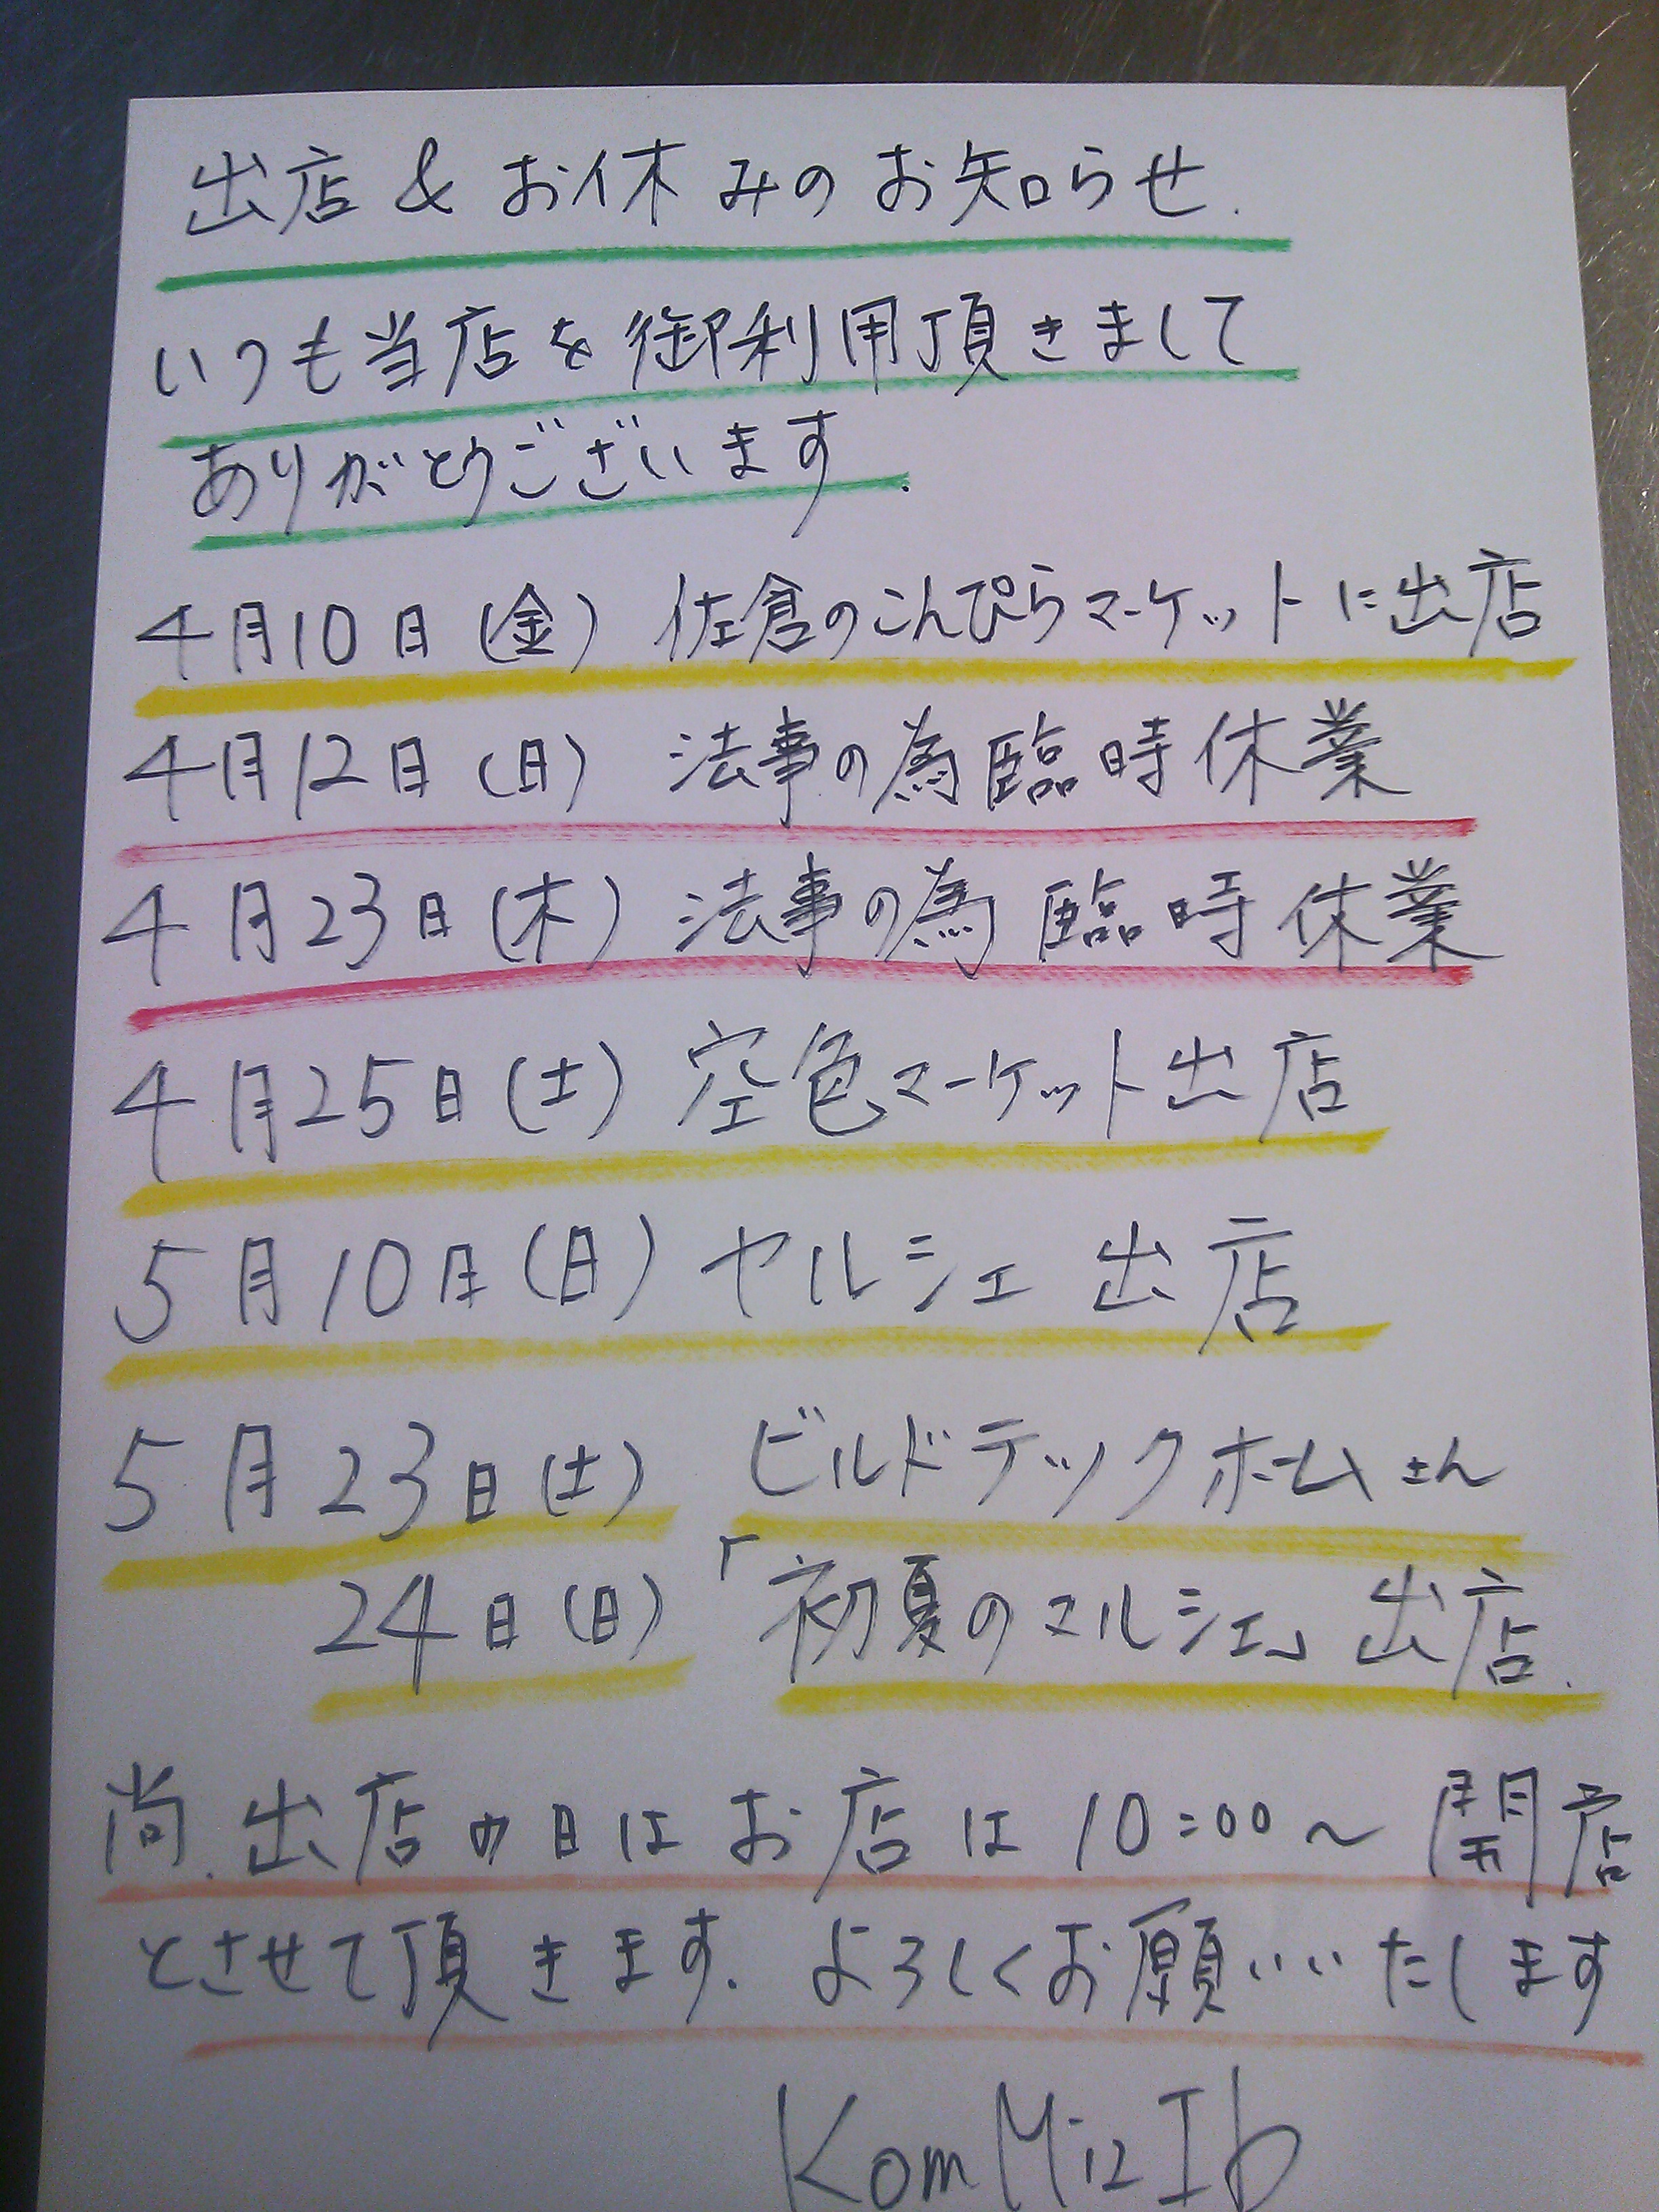 出店&お休みのお知らせ.
いつも当店を御利用頂きまして
ありがとうございます.
4月10日(金) 佐倉のこんぴらマーケットに出店
4月12日(日) 法事の為臨時休業
4月23日(木) 法事の為臨時休業
4月25日(土) 空色マーケット出店
5月10日(日) ヤルシェ出店
5月23日(土) ビルドテックホームさん
24日(日) 「初夏のマルシェ」出店.
尚.出店の日はお店は10:00~開店
とさせて頂きます.よろしくお願いいたします